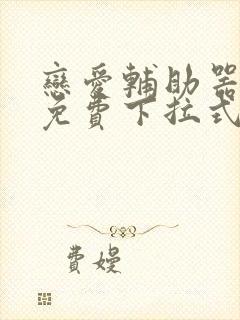 戀愛輔助器
免費下拉式
費嫚